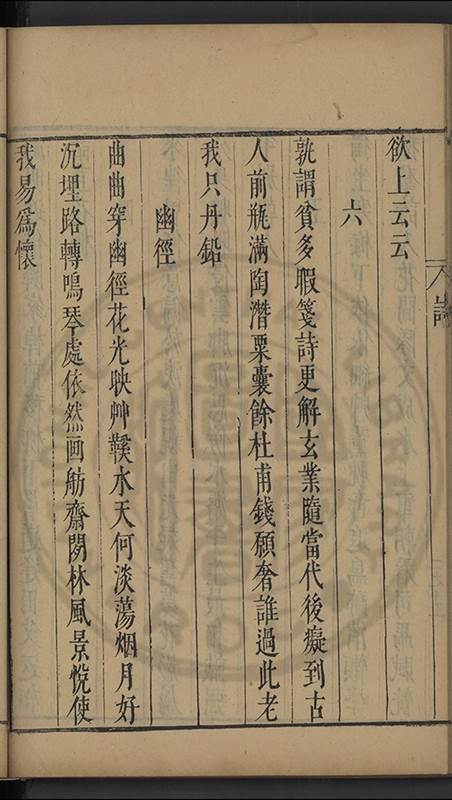 欲上云云
六
孰謂貧多暇箋詩更解玄業隨當代後癡到古
人前瓶滿陶潛粟囊餘杜甫錢願奢誰過此老
我只丹鉛
幽徑
曲曲穿幽徑花光映艸鞵水天何淡蕩烟月好
沉埋路轉鳴琴處依然画舫齋閒林風景悅使
我易為懷